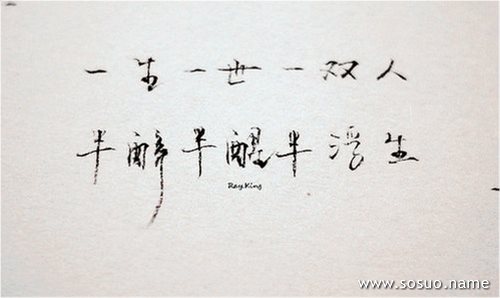 一生一世一双人
半醉半醒半浮生
Ray.King
www.sosuo.name